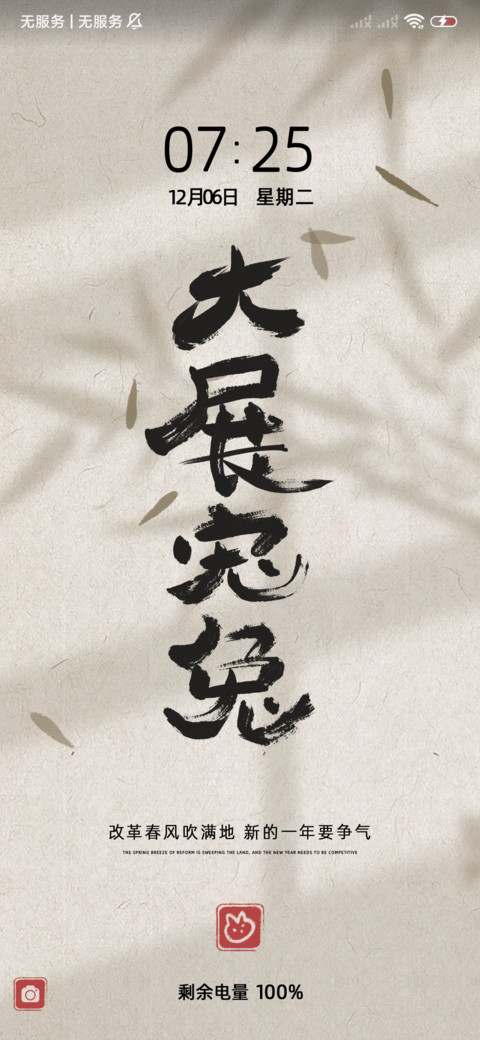 无服务 | 无服务
07:25
12月06日 星期二
大展宏兔
改革春风吹满地 新的一年要争气
THE SPRING BREEZE OF REFORM IS SWEEPING THE LAND, AND THE NEW YEAR NEEDS TO BE COMPETITIVE
剩余电量 100%